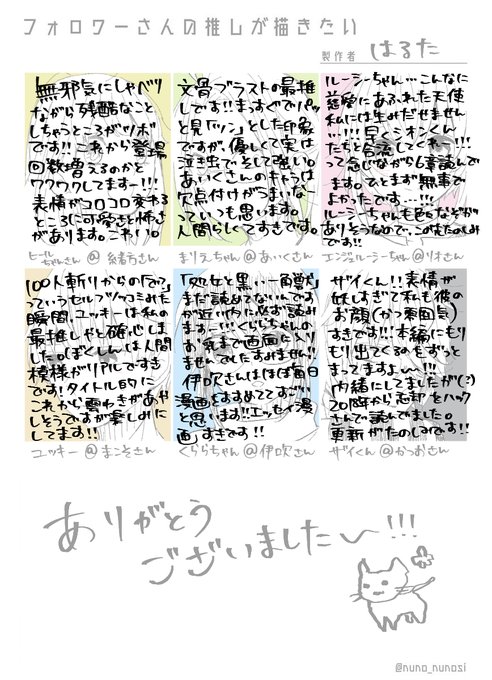 フォロワーさんの推しが描きたい
製作者 はるた
無邪気にしゃべり
ながら残酷なこと
しちゃうところがツボ
です!!これから登場
回数増えるのかと
ワクワクしてます―!!!
表情がコロコロ変わる
ところに可愛さと怖さ
があります。こわい。
ヒールちゃんさん@緒方さん
文骨ブラストの最推
しです!!まっすぐでパッ
と見「ツン」とした印象
ですが、優しくて実は
泣き虫でそして強い。
あいくさんのキャラは
欠点付けがうまいなー
っていつも思います。
人間らしくてすきです。
まりえちゃん@あいくさん
ルーシーちゃん…こんなに
慈愛にあふれた天使
私には生みだせません
…!!!早くシオンくん
たちと合流してくれ…!!!
って念じながら6章読んで
ます。ひとまず無事で
よかったです…!!!
ルーシーちゃんも色々なぞが
ありそうなので、この先たのしみ
です!!
エンジェルーシーちゃん@りオさん
100人斬りからの「でっ」
っていうセルフツッコミみた
瞬間、ユッキーは私のしま
最推しやと確心しま
した。ぼくしんは人間
模様がリアルですき
です!タイトル的に
これから雲ゆきがあや
しそうですが楽しみに
してます!!
ユッキー@まこそさん
「処女と黒い一角獣」
まだ読めてないんです
が近い内に必ず読み
ます―!!!くららちゃんの
お乳まで画面に入り
ませんでしたすみません!!
伊吹さんはほぼ毎日
漫画をすすめててすごい
と思います!!エッセイ漫
画すきです!!
くららちゃん@伊吹さん
ザイくん!!表情が
妖しすぎて私も彼の
お顔(かつ雰囲気)
すきです!!本編にもり
もり出てくるのをずっと
まってますよ〜!!!
内緒にしてましたが(?)
20降から忘却をハック
さんで読んでました。
更新がたのしみです!!
ザイくん@かつおさん
ありがとう
ございました〜!!!
@nuno_nunosi